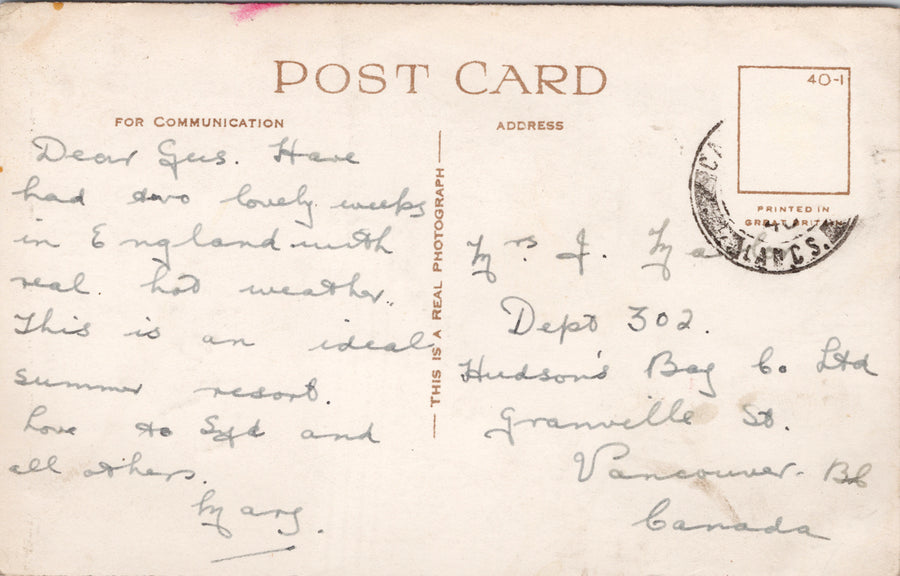 POST CARD
FOR COMMUNICATION
ADDRESS
40-1
PRINTED IN
GREAT BRITAIN
CA
LANCS.
THIS IS A REAL PHOTOGRAPH
Dear Gus. Have
had two lovely weeks
in England with
real hot weather.
This is an ideal
summer resort.
Love to Syd and
all others.
Mary.
Mrs. J.
Dept 302.
Hudson's Bay Co. Ltd
Granville St.
Vancouver. BC
Canada